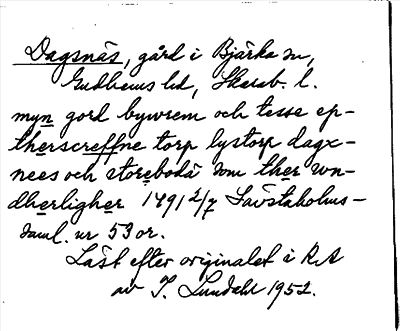 Dagsnäs, gård i Bjärka sn,
Gudhems hd, Skarab. l.
myn gord bywrem och tesse ep-
therscreffne torp lystorp dagx-
nees och storebodä som ther wn-
dherligher 1491 2/7 Sävstaholms-
saml. nr 53 or.
Läst efter originalet i RA
av I. Lundahl 1952.